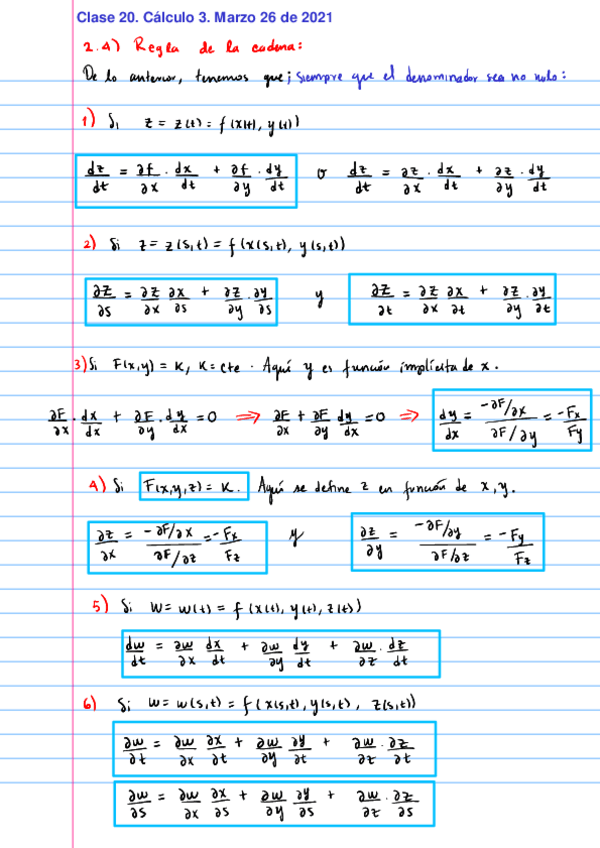 Clase 20. Cálculo 3. Marzo 26 de 2021
2.4) Regla de la cadena:
De lo anterior, tenemos que; siempre que el denominador sea no nulo:
1) Si z = z(t) = f(x(t), y(t))
dz/dt = ∂f/∂x · dx/dt + ∂f/∂y · dy/dt o dz/dt = ∂z/∂x · dx/dt + ∂z/∂y · dy/dt
2) Si z = z(s,t) = f(x(s,t), y(s,t))
∂z/∂s = ∂z/∂x ∂x/∂s + ∂z/∂y · ∂y/∂s y ∂z/∂t = ∂z/∂x ∂x/∂t + ∂z/∂y · ∂y/∂t
3) Si F(x,y) = K, K = cte. Aquí y es función implícita de x.
∂F/∂x · dx/dx + ∂F/∂y · dy/dx = 0 ⇒ ∂F/∂x + ∂F/∂y dy/dx = 0 ⇒ dy/dx = -∂F/∂x / ∂F/∂y = -Fx/Fy
4) Si F(x,y,z) = K. Aquí se define z en función de x,y.
∂z/∂x = -∂F/∂x / ∂F/∂z = -Fx/Fz y ∂z/∂y = -∂F/∂y / ∂F/∂z = -Fy/Fz
5) Si w = w(t) = f(x(t), y(t), z(t))
dw/dt = ∂w/∂x dx/dt + ∂w/∂y dy/dt + ∂w/∂z · dz/dt
6) Si w = w(s,t) = f(x(s,t), y(s,t), z(s,t))
∂w/∂t = ∂w/∂x ∂x/∂t + ∂w/∂y ∂y/∂t + ∂w/∂z · ∂z/∂t
∂w/∂s = ∂w/∂x ∂x/∂s + ∂w/∂y ∂y/∂s + ∂w/∂z · ∂z/∂s